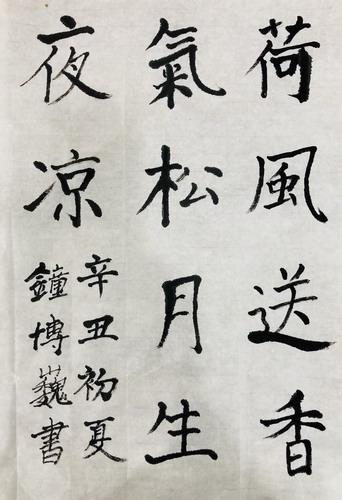 荷風送香
氣松月生
夜凉
辛丑初夏
鐘博巍書